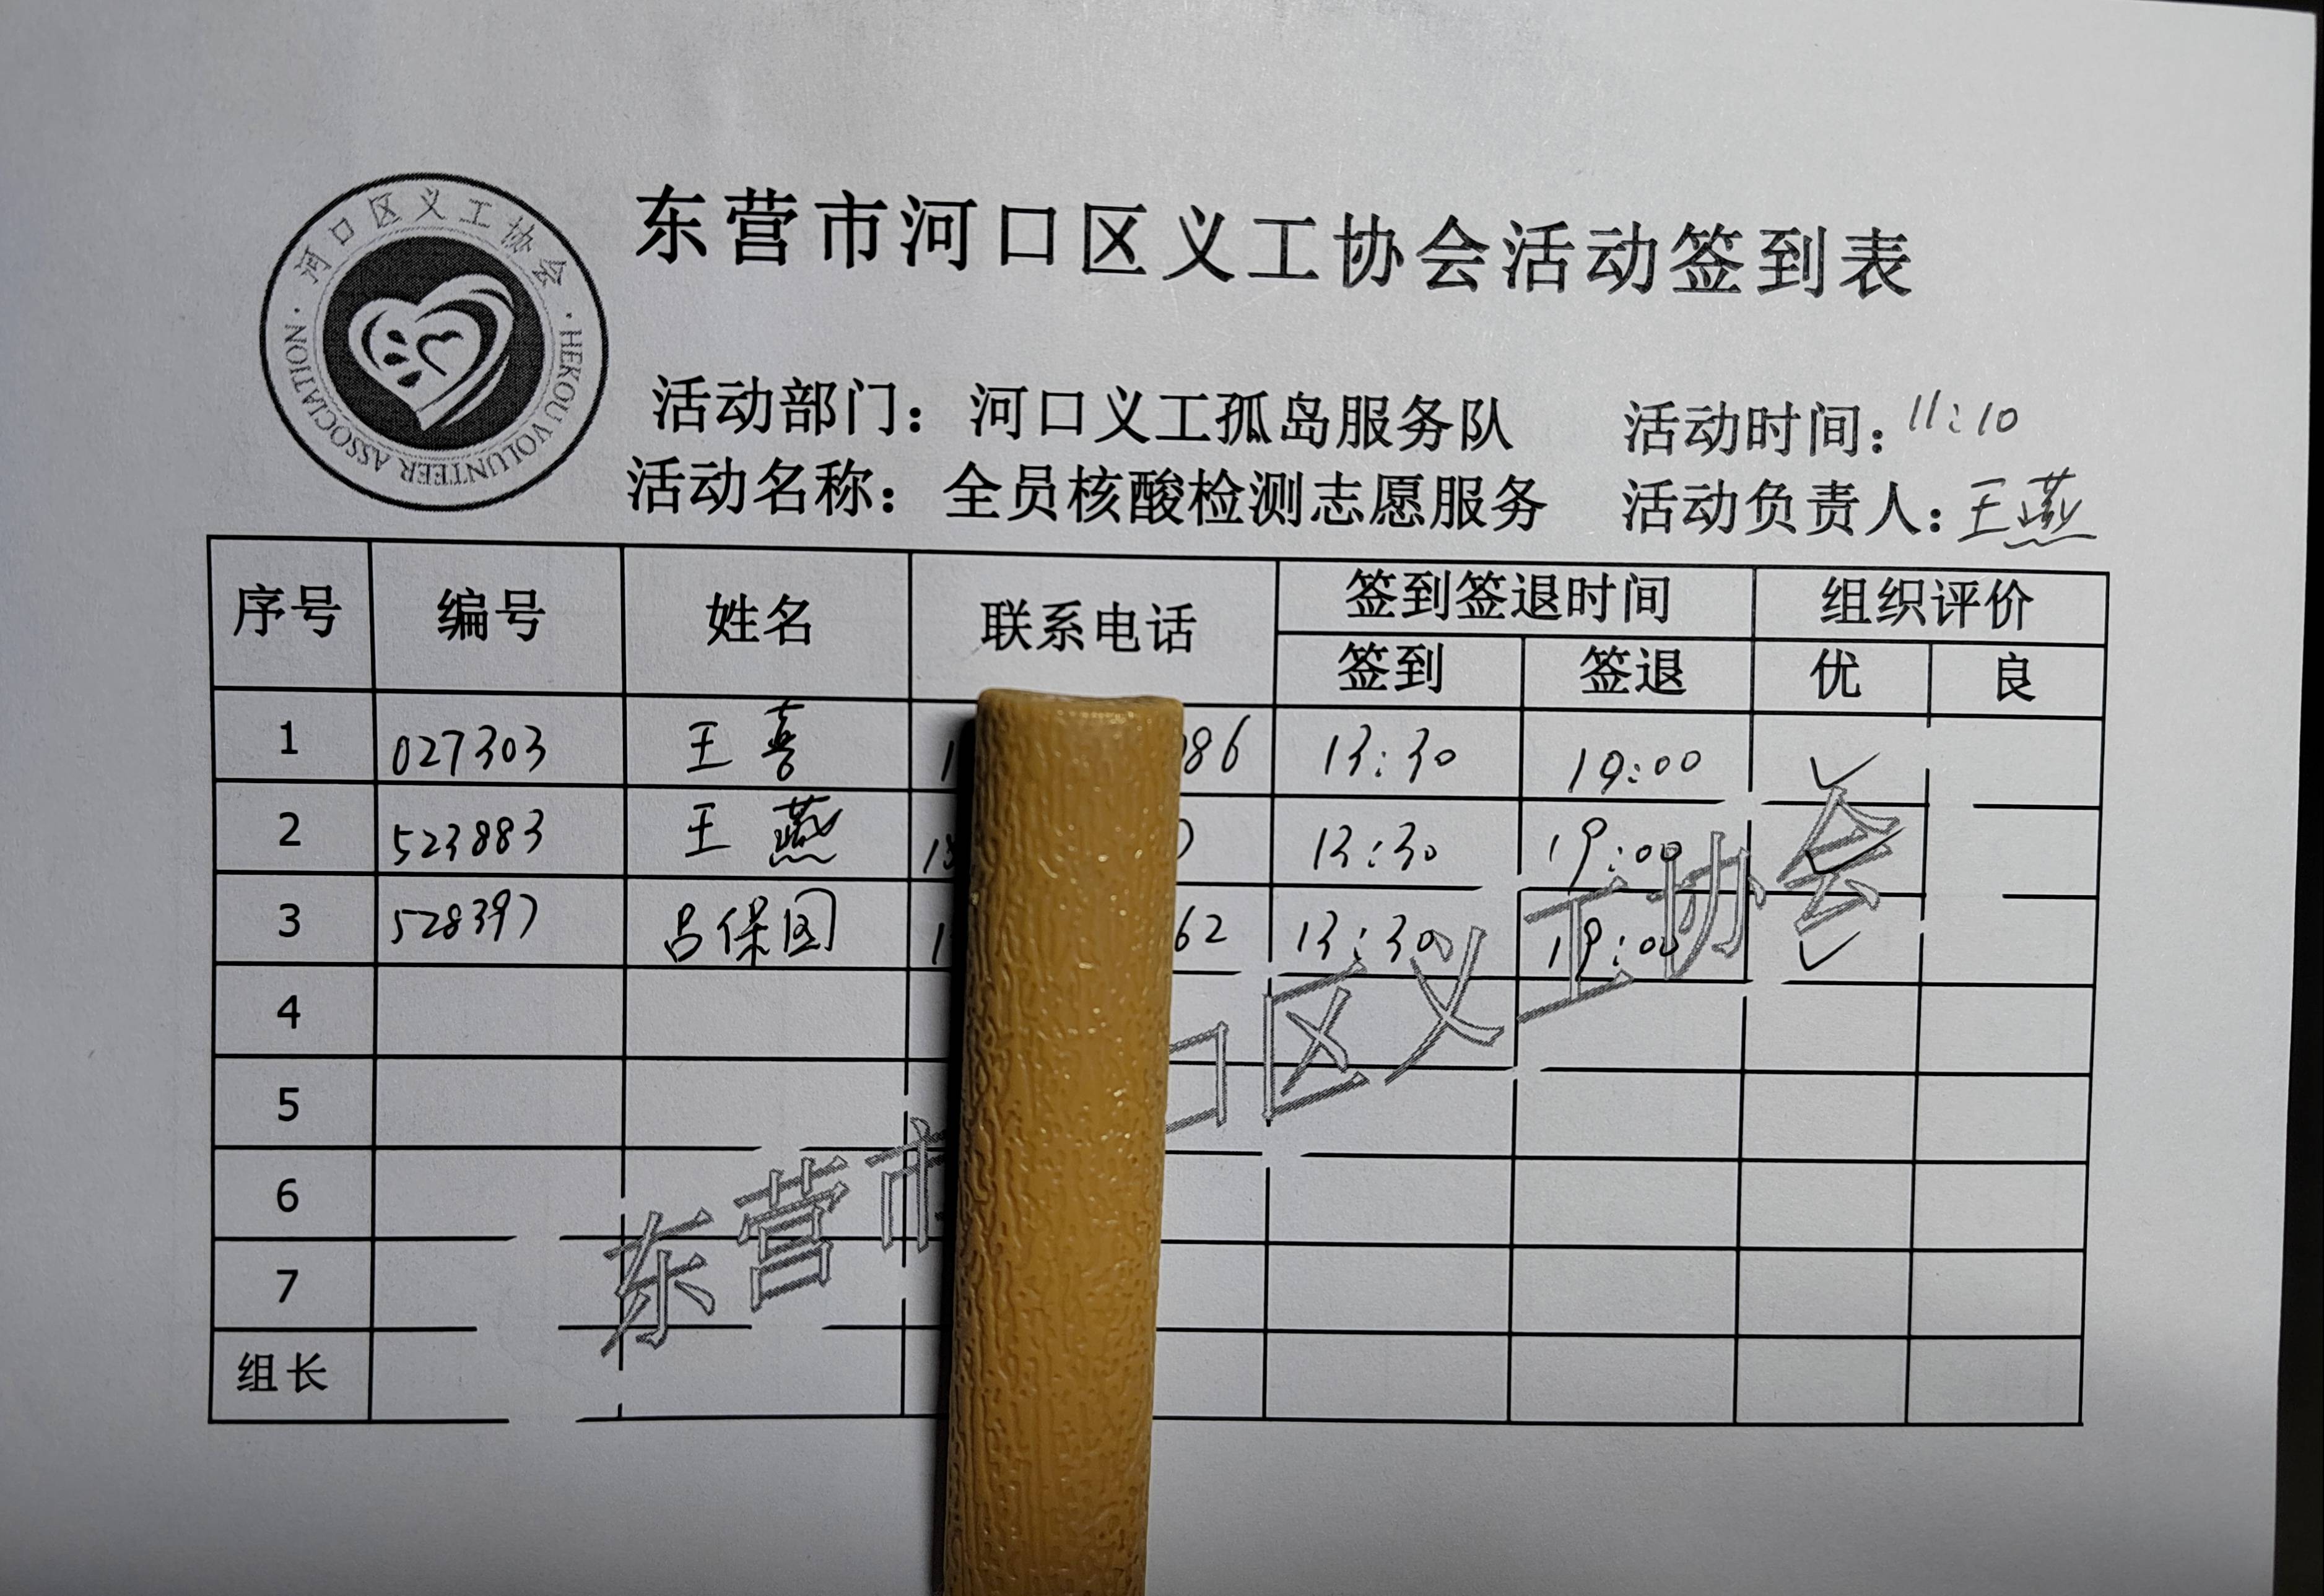 河口区义工协会
HEKOU VOLUNTEER ASSOCIATION
东营市河口区义工协会活动签到表
活动部门：河口义工孤岛服务队 活动时间：11:10
活动名称：全员核酸检测志愿服务 活动负责人：王燕
序号 编号 姓名 联系电话 签到签退时间 组织评价
签到 签退 优 良
1 027303 王喜 1 86 13:30 19:00 ✓
2 523883 王燕 13:30 19:00 ✓
3 528397 吕保国 1 62 13:30 19:00 ✓
4
5
6
7
组长
东营市 口区义工协会